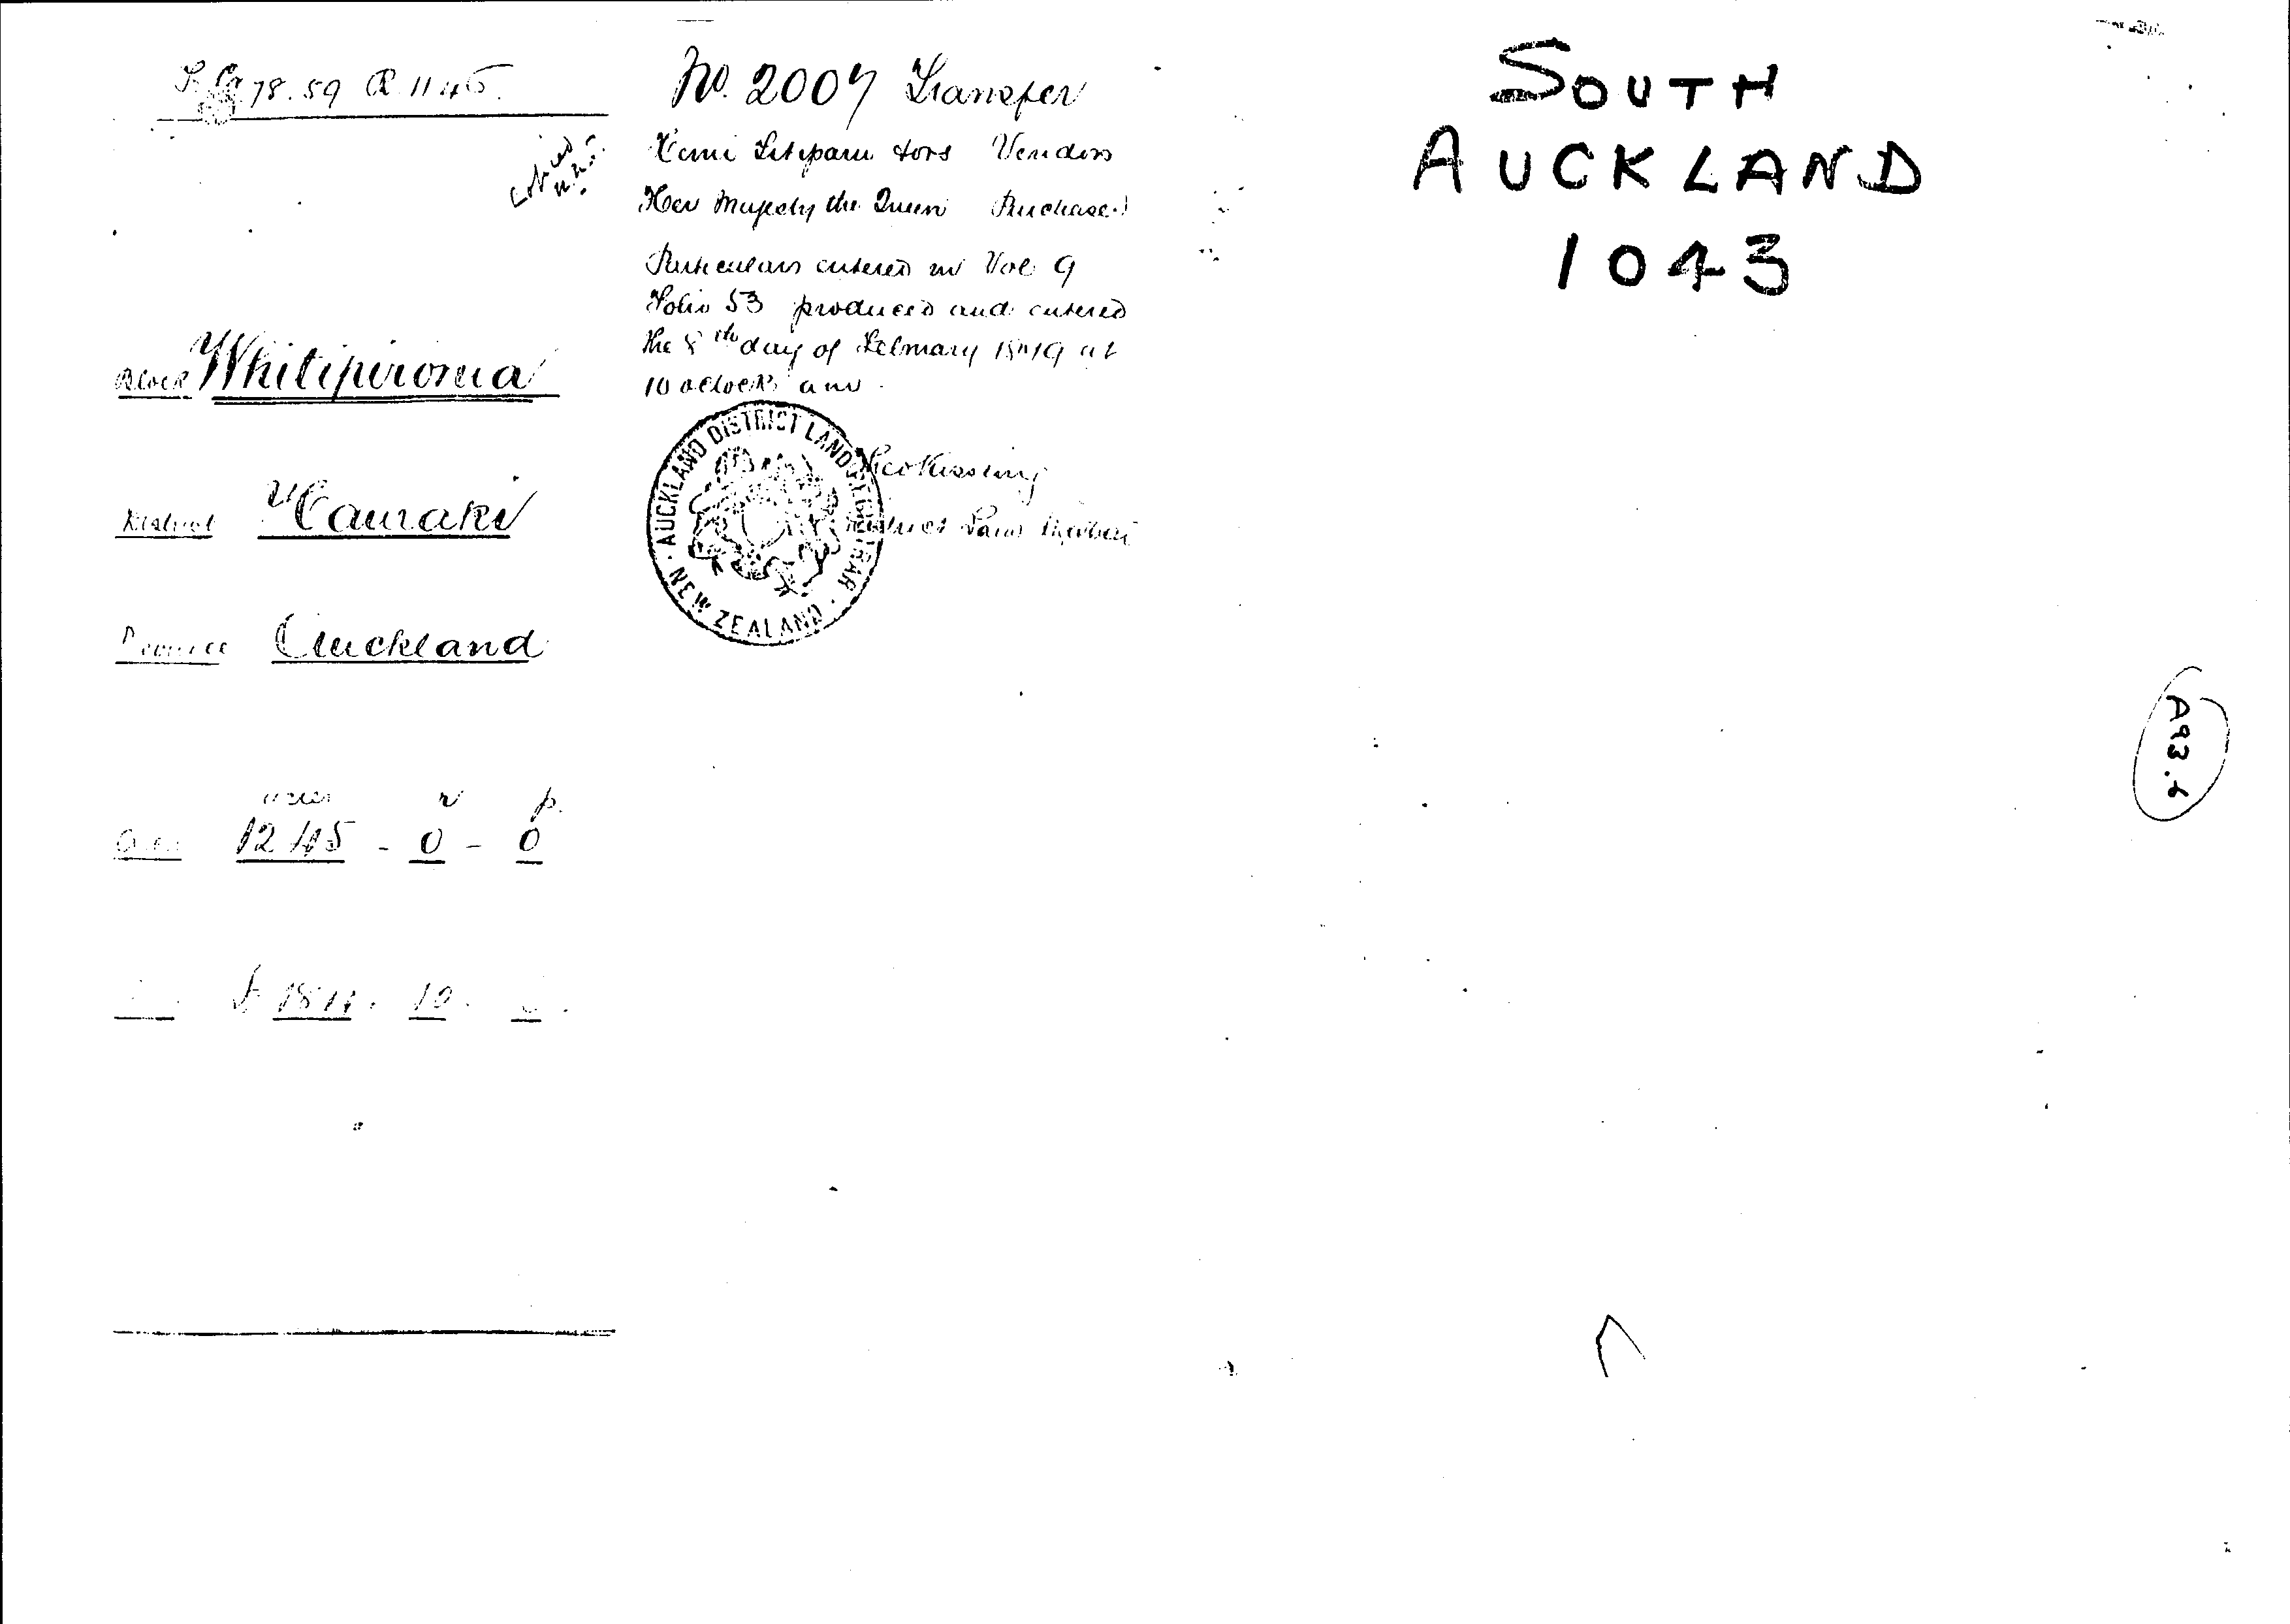 78.59 R 1145.
Copied
Block Whitipirorua
District Hauraki
Province Auckland
acres r p.
Area 1245 - 0 - 0
£ 10.
No. 2007 Transfer
Hemi & ors Vendors
Her Majesty the Queen Purchaser
Particulars entered in Vol 9
Folio 53 produced and entered
the 8th day of February 1879 at
10 oclock am.
Theo Kissling
District Land Registrar
AUCKLAND DISTRICT LAND REGISTRAR · NEW ZEALAND ·
SOUTH
AUCKLAND
1043
A93.